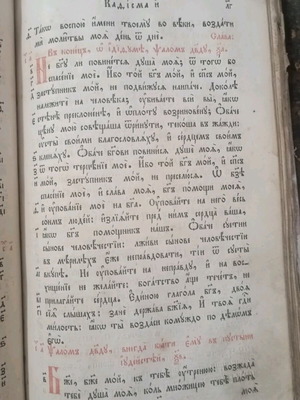 Каѳісма и҃
Та́кѡ воспою̀ и҆́мени твоемꙋ̀ во вѣ́ки, возда́ти
мѝ моли́твы моѧ̑ де́нь ѿ днѐ. Сла́ва:
Въ коне́цъ, ѡ҆ і҆діѳꙋ́мѣ, ѱало́мъ дв҃дꙋ, ѯ҃а.
Не бг҃ꙋ ли повине́тсѧ дꙋша̀ моѧ̀; ѿ тогѡ̀ бо
спасе́нїе моѐ. И҆́бо то́й бг҃ъ мо́й, и҆ сп҃съ мо́й,
застꙋ́пникъ мо́й, не подви́жꙋсѧ наипа́че. Доко́лѣ
належитѐ на человѣ́ка; ᲂу҆бива́ете всѝ вы̀, ꙗ҆́кѡ
стѣнѣ̀ преклоне́нѣ, и҆ ѡ҆пло́тꙋ возринове́нꙋ. Ѻ҆ба́че
цѣ́нꙋ мою̀ совѣща́ша ѿри́нꙋти, теко́ша въ жа́жди:
ᲂу҆сты̑ свои́ми благословлѧ́хꙋ, и҆ се́рдцемъ свои́мъ
кленѧ́хꙋ. Ѻ҆ба́че бг҃ови повини́сѧ дꙋшѐ моѧ̀, ꙗ҆́кѡ
ѿ тогѡ̀ терпѣ́нїе моѐ. И҆́бо то́й бг҃ъ мо́й, и҆ сп҃съ
мо́й, застꙋ́пникъ мо́й, не преселю́сѧ. Ѡ҆ бз҃ѣ
спасе́нїе моѐ, и҆ сла́ва моѧ̀, бг҃ъ по́мощи моеѧ̀,
и҆ ᲂу҆пова́нїе моѐ на бг҃а. Оу҆пова́йте на него̀ ве́сь
со́нмъ люде́й: и҆злїѧ́йте пред̾ ни́мъ сердца̀ ва̑ша,
ꙗ҆́кѡ бг҃ъ помо́щникъ на́шъ. Ѻ҆ба́че сꙋ́етни
сы́нове человѣ́честїи: лжи́ви сы́нове человѣ́честїи
въ мѣ́рилѣхъ є҆́же непра́вдовати, ті́и ѿ сꙋеты̀
вкꙋ́пѣ. Не ᲂу҆пова́йте на непра́вдꙋ, и҆ на вос-
хище́нїе не жела́йте: бога́тство а҆́ще тече́тъ, не
прилага́йте сердца̀. Є҆ди́ною гл҃а бг҃ъ, двоѧ̑
сїѧ̑ слы́шахъ: занѐ держа́ва бж҃їѧ. И҆ твоѧ̀ гдⷭ҇и
ми́лость: ꙗ҆́кѡ ты̀ возда́си комꙋ́ждо по дѣлѡ́мъ
є҆гѡ̀.
Ѱало́мъ дв҃дꙋ, внегда̀ бы́ти є҆мꙋ̀ въ пꙋсты́ни
і҆ꙋде́йстѣй, ѯ҃в.
Бж҃е, бж҃е мо́й, къ тебѣ̀ ᲂу҆́тренюю: возжада̀
тебѐ дꙋша̀ моѧ̀, ко́ль мно́жицею тебѣ̀ пло́ть